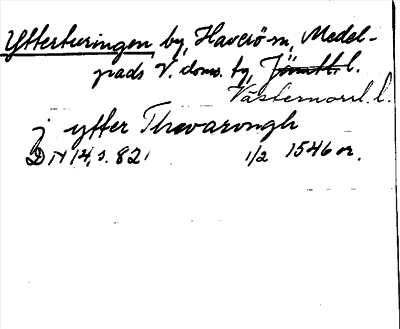 Ytterturingen by, Haverö sn, Medel-
pads V. doms. by, Jämtl. l.
Västernorrl. l.
j ytter Thwarongh
DN 14, s. 821 1/2 1546 or.